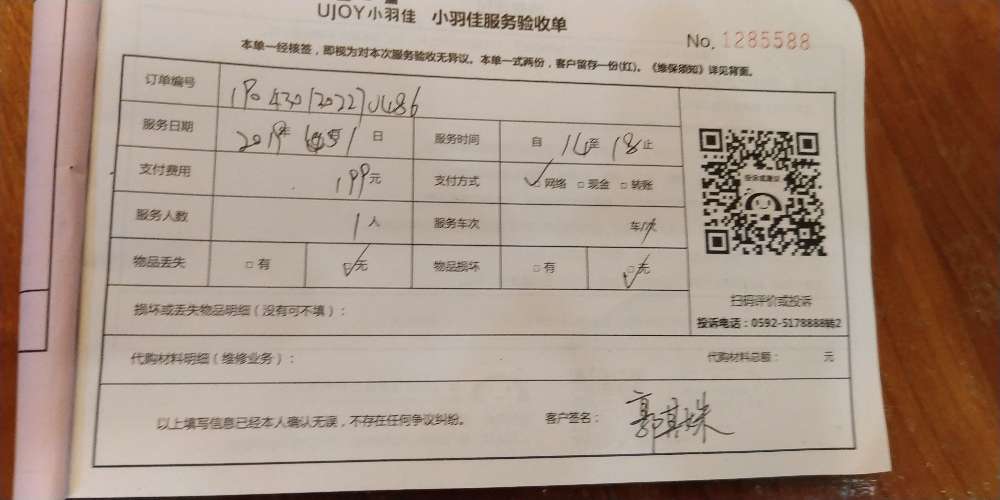 UJOY小羽佳 小羽佳服务验收单
No. 1285588
本单一经核签，即视为对本次服务验收无异议。本单一式两份，客户留存一份(红)。《维保须知》详见背面。
订单编号
服务日期 2019年 月 1日 服务时间 自 14 至 18 止
支付费用 199元 支付方式 ☑网络 □现金 □转账
服务人数 1人 服务车次 车/次
物品丢失 □有 ☑无 物品损坏 □有 ☑无
投诉或建议
扫码评价或投诉
投诉电话：0592-5178888转2
损坏或丢失物品明细（没有可不填）：
代购材料明细（维修业务）： 代购材料总额： 元
以上填写信息已经本人确认无误，不存在任何争议纠纷。 客户签名：郭其姝